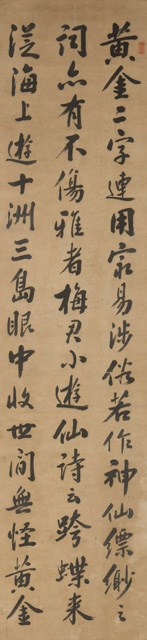 黃金二字連用最易涉俗若作神仙縹緲之
詞亦有不傷雅者梅君小遊仙詩云跨蝶來
從海上遊十洲三島眼中收世間無怪黃金